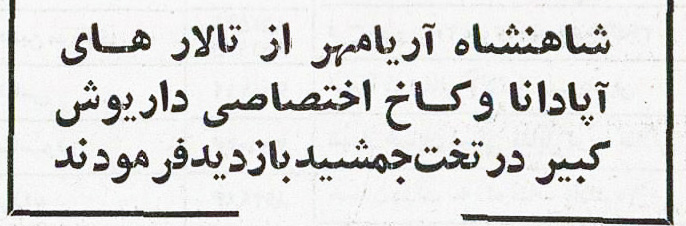 شاهنشاه آریامهر از تالار های
آپادانا و کاخ اختصاصی داریوش
کبیر در تخت‌جمشید بازدید فرمودند